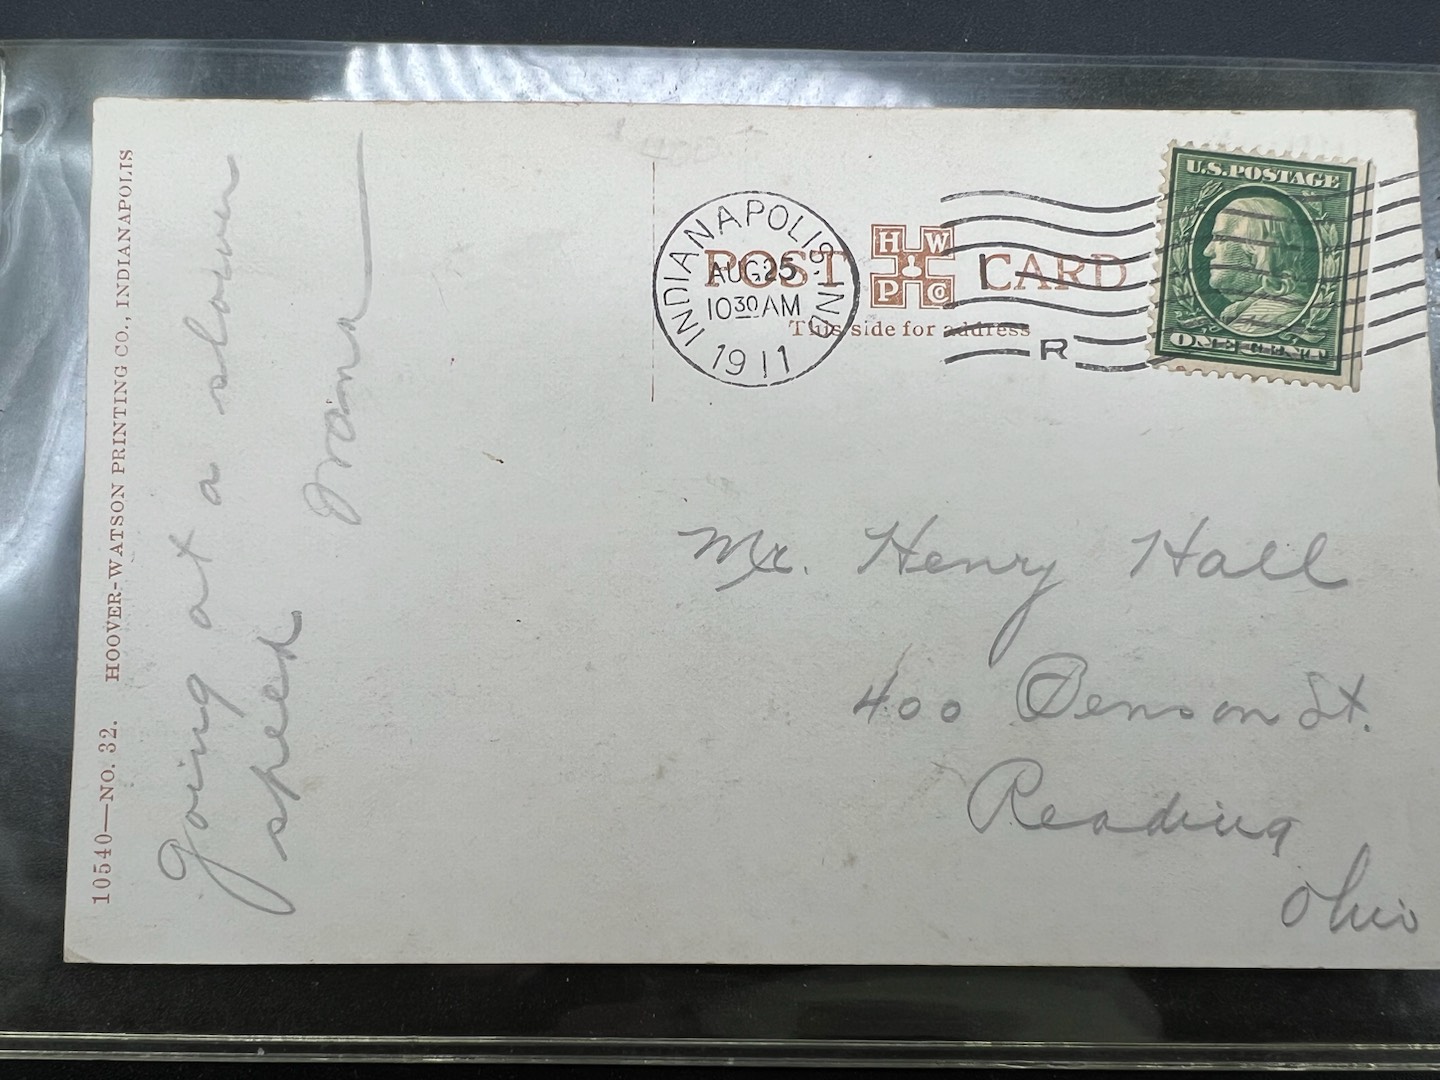 10540—NO. 32. HOOVER-WATSON PRINTING CO., INDIANAPOLIS
Going at a slower
speed
400
INDIANAPOLIS, IND.
AUG 25
10 30 AM
1911
POST CARD
H W
P Co
This side for address
1
R
U.S. POSTAGE
ONE CENT
Mr. Henry Hall
400 Benson St.
Reading
Ohio